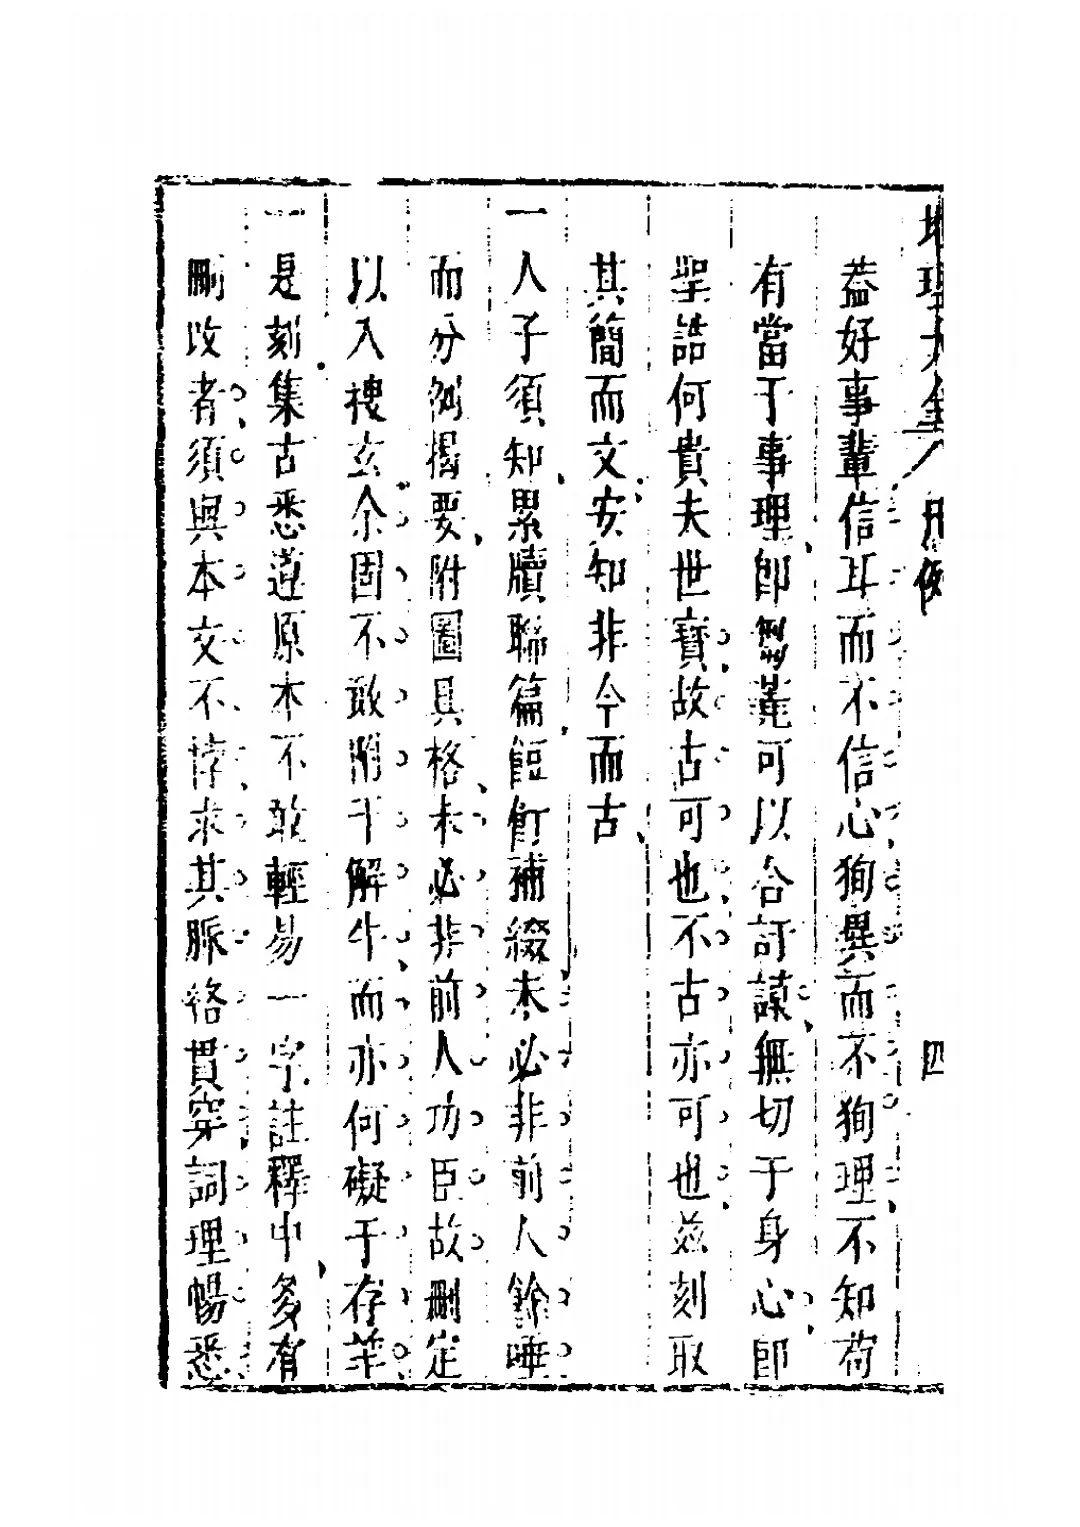 地理大全 凡例 四
蓋好事輩信耳而不信心狥異而不狥理不知苟
有當于事理卽芻蕘可以合訏謀無切于身心卽
聖誥何貴夫世寶故古可也不古亦可也茲刻取
其簡而文安知非今而古
一人子須知累牘聯篇餖飣補綴未必非前人餘唾
而分例揭要附圖具格未必非前人功臣故刪定
以入禆玄余固不敢附于解牛而亦何礙于存羊
一是刻集古悉遵原本不敢輕易一字註釋中多有
刪改者須與本文不悖求其脈絡貫穿詞理暢悉